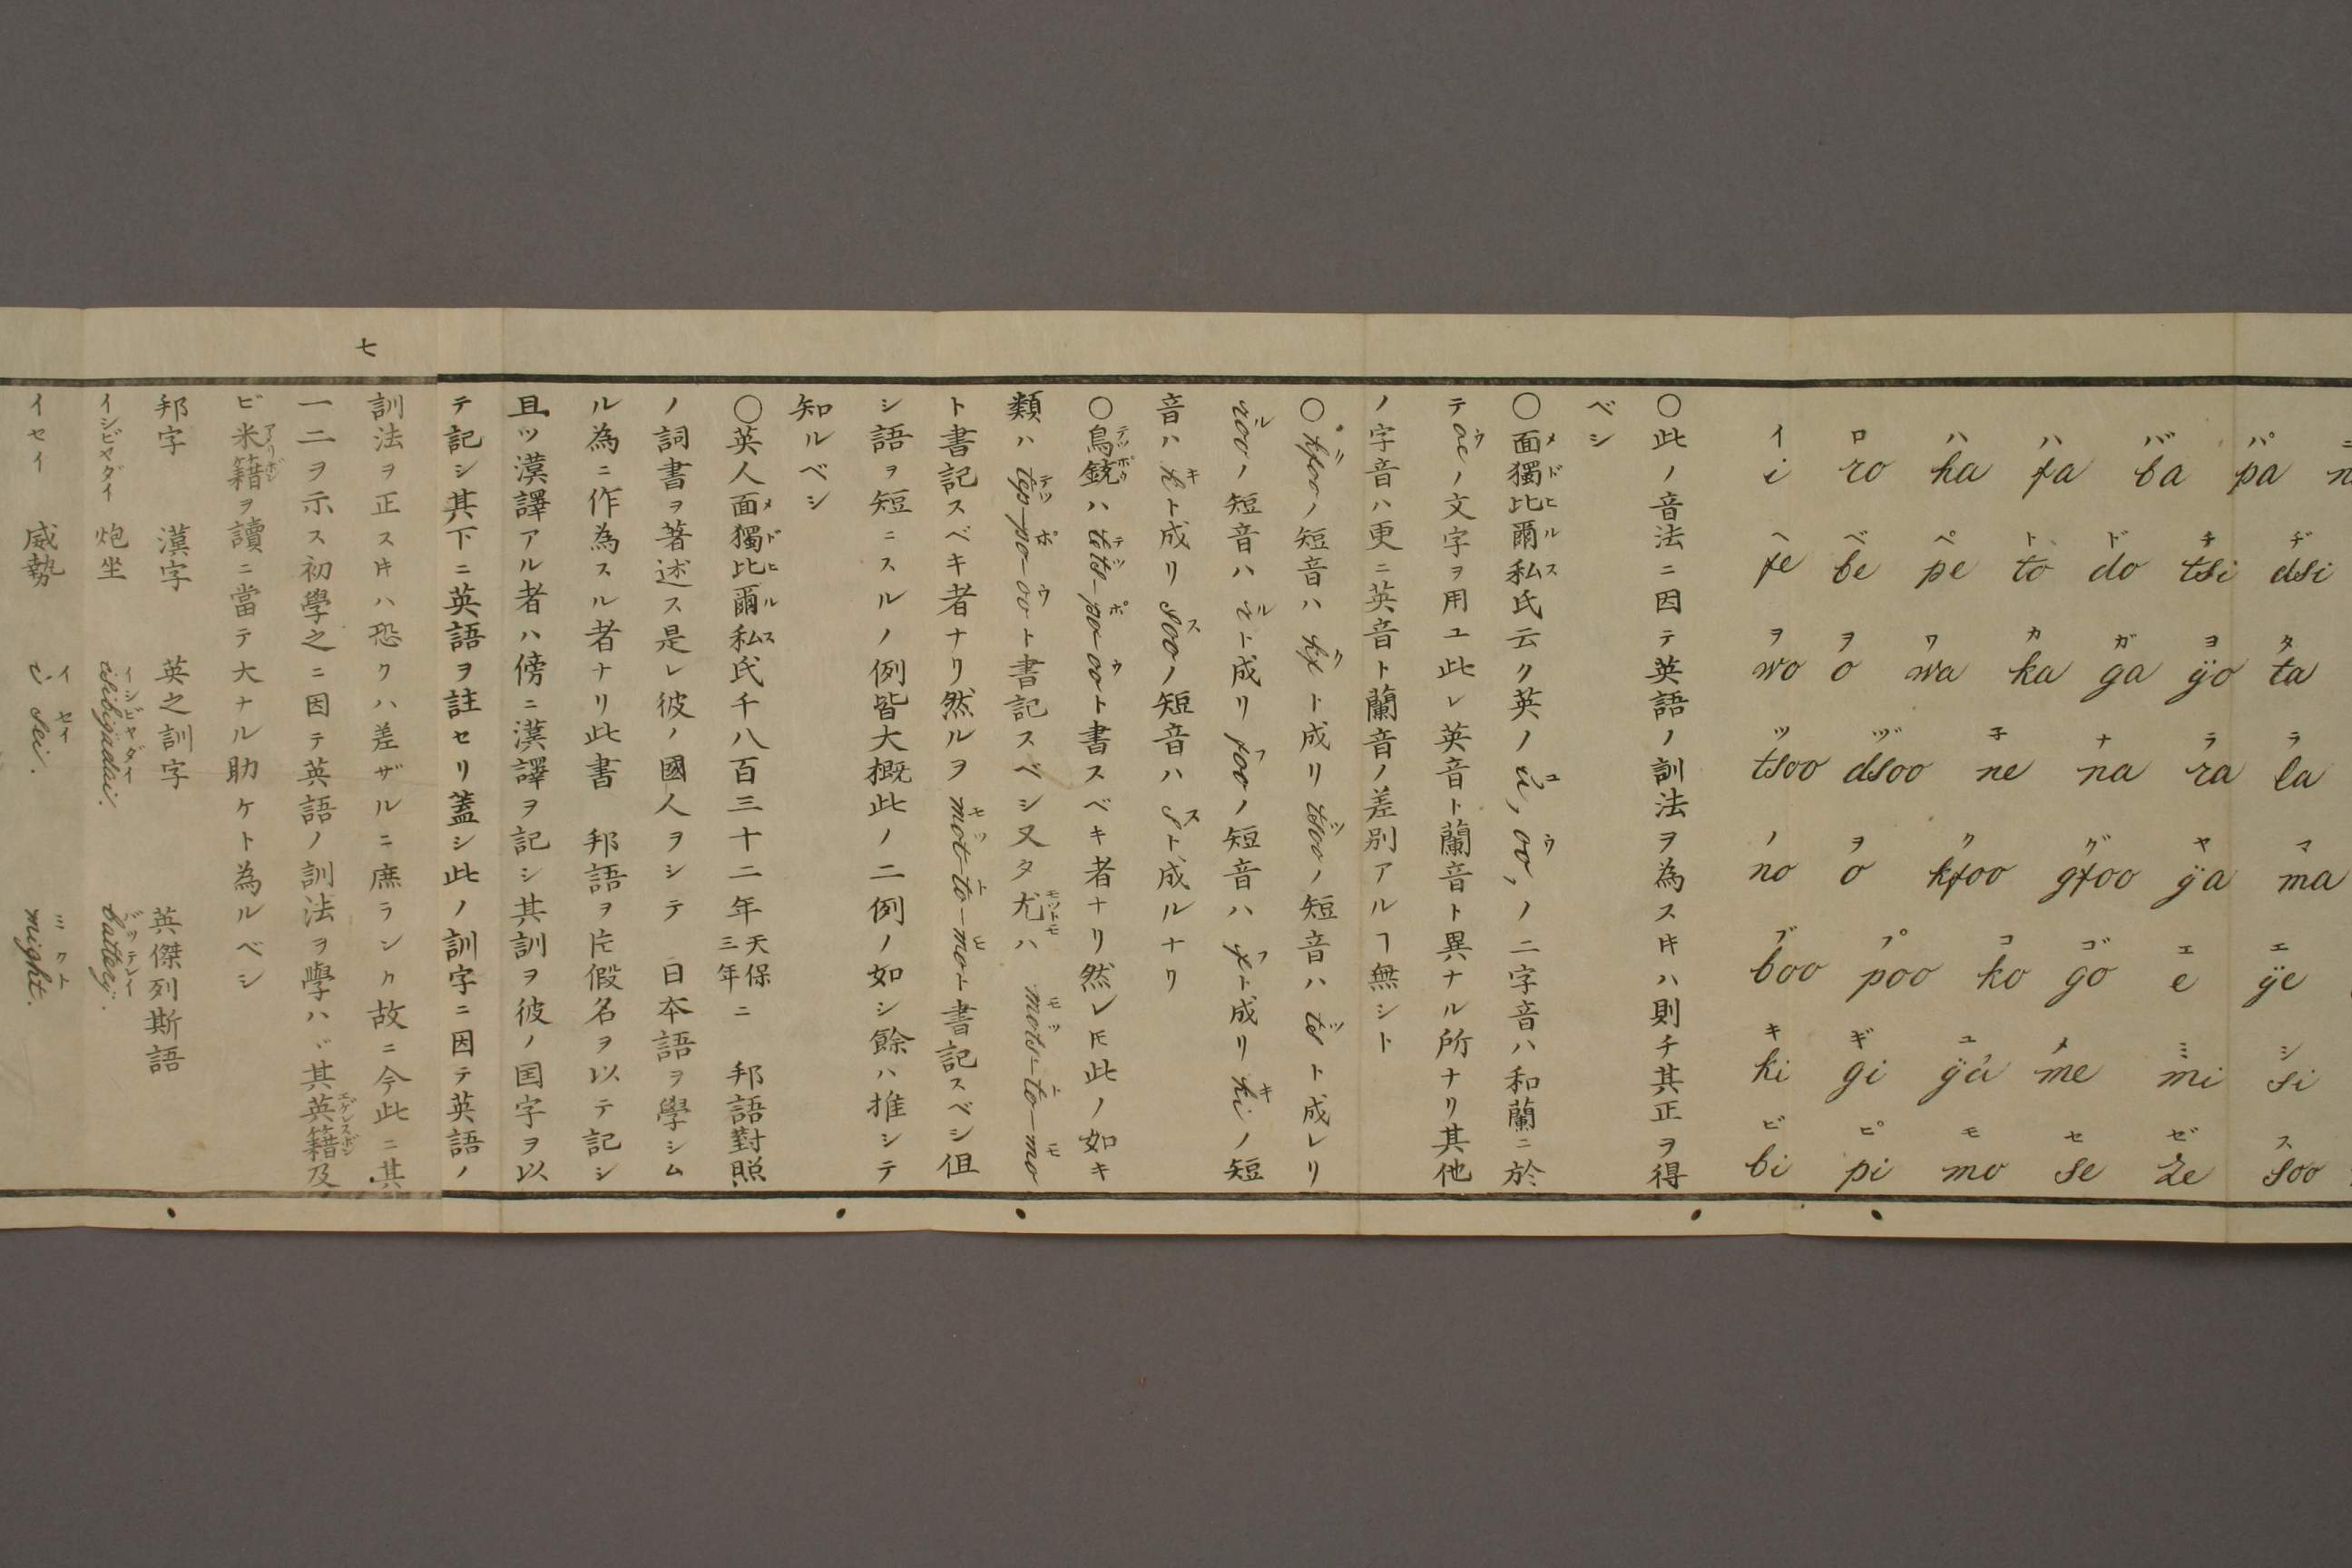 イ ロ ハ ハ バ パ
i ro ha fa ba pa
ヘ ベ ペ ト ド チ ヂ
fe be pe to do tsi dsi
ヲ ヲ ワ カ ガ ヨ タ
wo o wa ka ga ÿo ta
ツ ヅ 子 ナ ラ ラ
tsoo dsoo ne na ra la
ノ ヲ ク グ ヤ マ
no o kfoo gfoo ÿa ma
ブ プ コ ゴ エ エ
boo poo ko go e ÿe
キ ギ ユ メ ミ シ
ki gi ÿu me mi si
ビ ピ モ セ ゼ ス
bi pi mo se ze soo
〇此ノ音法ニ因テ英語ノ訓法ヲ為スㇵ則チ其正ヲ得
ベシ
〇面獨比爾私氏云ク英ノ u, oo, ノ二字音ハ和蘭ニ於
テ oe ノ文字ヲ用ユ此レ英音ト蘭音ト異ナル所ナリ其他
ノ字音ハ更ニ英音ト蘭音ノ差別アルヿ無シト
〇 kfoo ノ短音ハ kf ト成リ tsoo ノ短音ハ ts ト成レリ
roo ノ短音ハ r ト成リ foo ノ短音ハ f ト成リ ki ノ短
音ハ k ト成リ soo ノ短音ハ s ト成ルナリ
〇鳥銃ハ tets-po-oo ト書スベキ者ナリ然レ𪜈此ノ如キ
類ハ tep-po-oo ト書記スベシ又タ尤ハ mots-to-mo
ト書記スベキ者ナリ然ルヲ mot-to-mo ト書記スベシ伹
シ語ヲ短ニスルノ例皆大概此ノ二例ノ如シ餘ハ推シテ
知ルベシ
〇英人面獨比爾私氏千八百三十二年天保三年ニ 邦語對照
ノ詞書ヲ著述ス是レ彼ノ國人ヲシテ 日本語ヲ學シム
ル為ニ作為スル者ナリ此書 邦語ヲ片假名ヲ以テ記シ
且ツ漢譯アル者ハ傍ニ漢譯ヲ記シ其訓ヲ彼ノ国字ヲ以
テ記シ其下ニ英語ヲ註セリ蓋シ此ノ訓字ニ因テ英語ノ
七
訓法ヲ正スㇵ恐クハ差ザルニ庶ランカ故ニ今此ニ其
一二ヲ示ス初學之ニ因テ英語ノ訓法ヲ學ハヾ其英籍及
ビ米籍ヲ讀ニ當テ大ナル助ケト為ルベシ
邦字 漢字 英之訓字 英傑列斯語
イシビヤダイ 炮坐 isibijadai. battery.
イセイ 威勢 i sei. might.